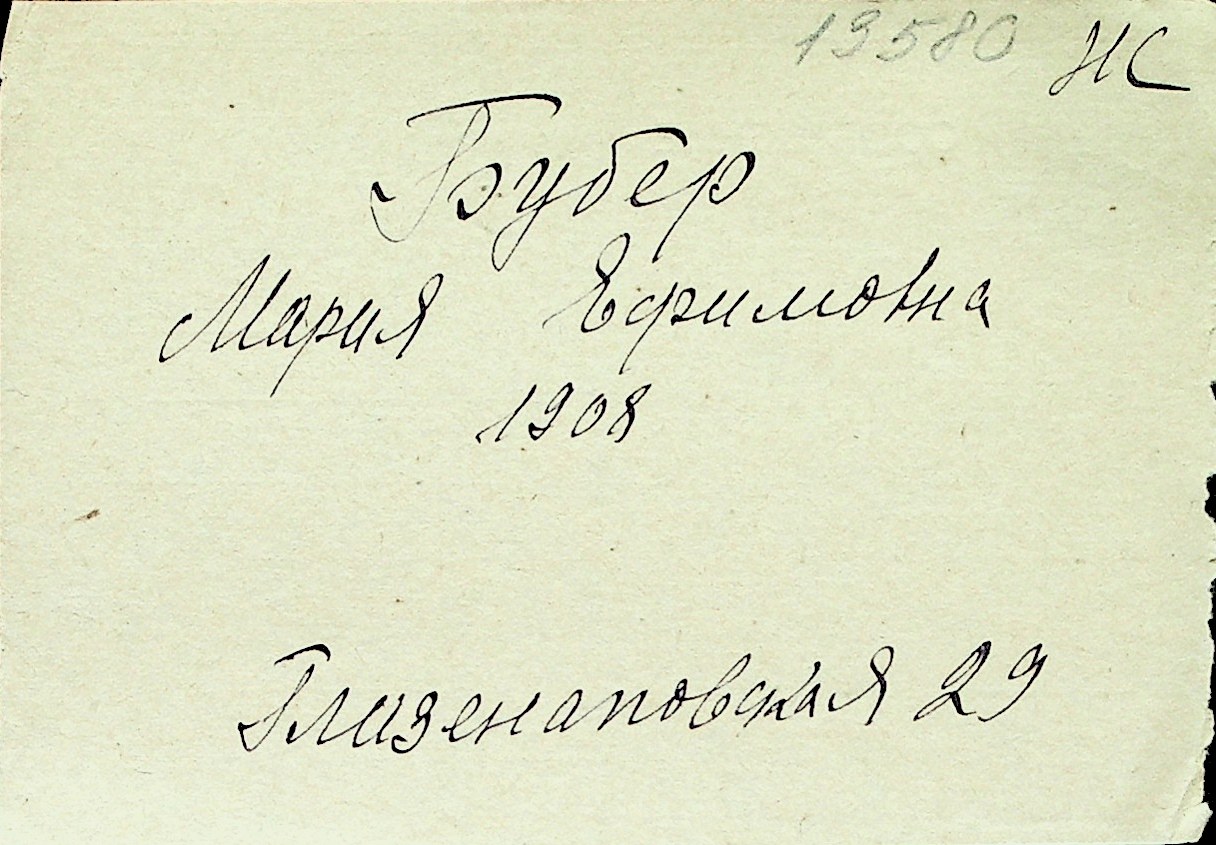 19580 НС
Бубер
Мария Ефимовна
1908
Глазенаповская 29